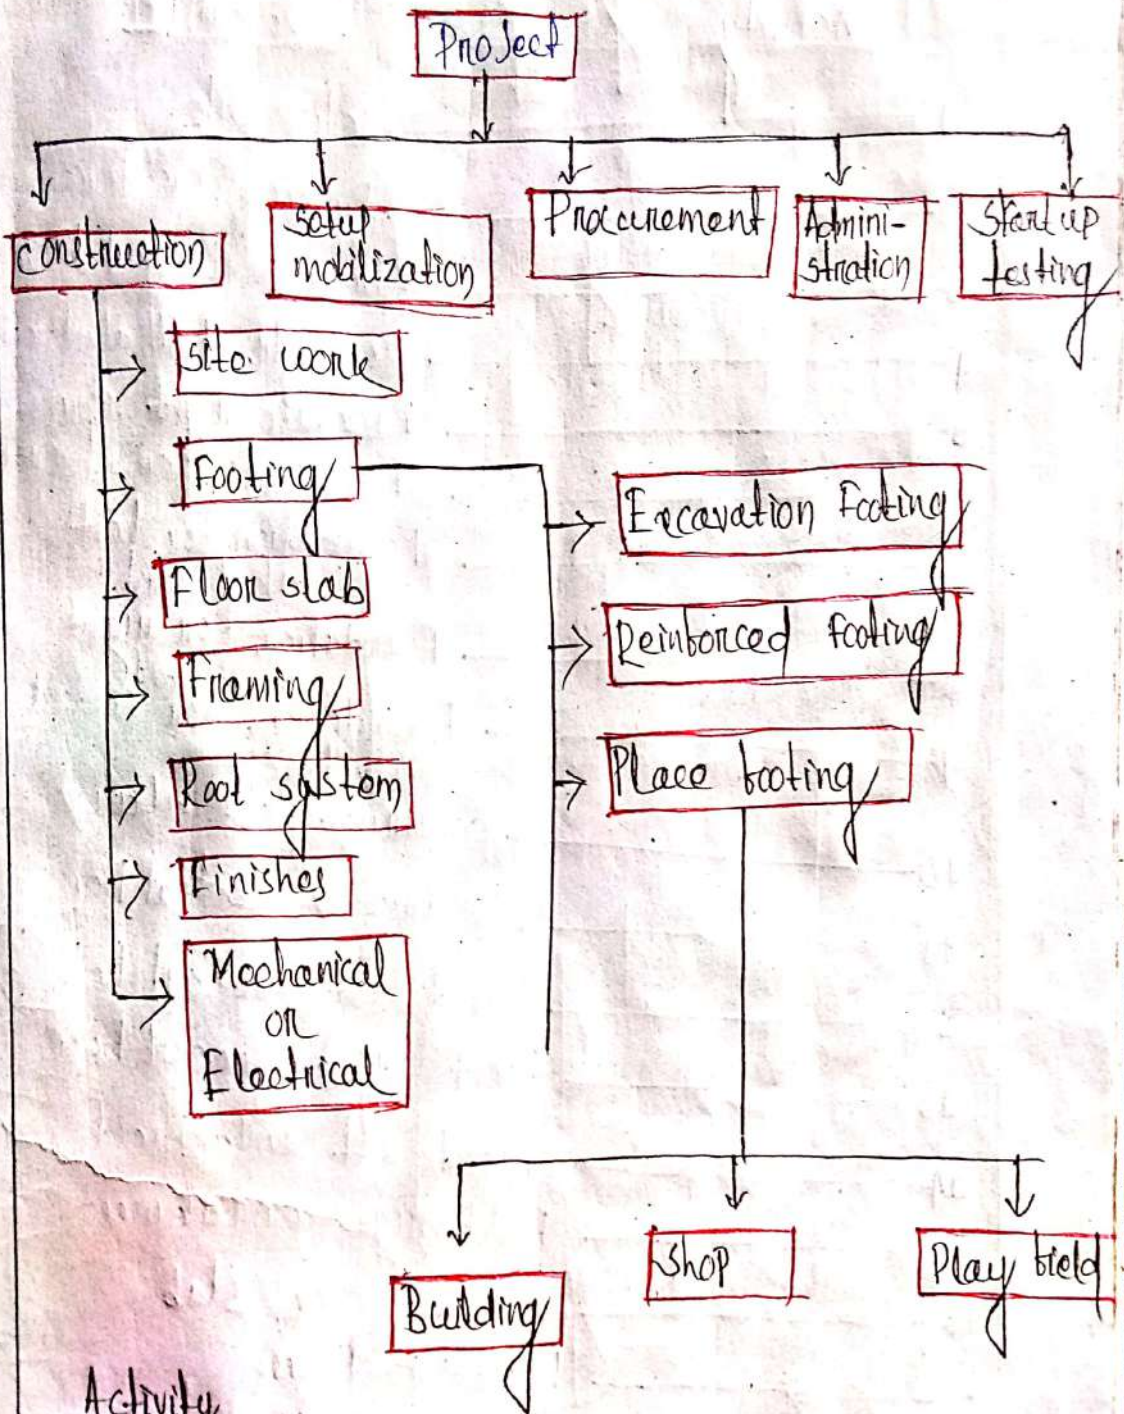 Project
construction
setup
mobilization
Procurement
Admini-
stration
Start up
testing
site work
Footing
Floor slab
Framing
Roof system
Finishes
Mechanical
or
Electrical
Excavation Footing
Reinforced footing
Place footing
Building
shop
Play field
Activity